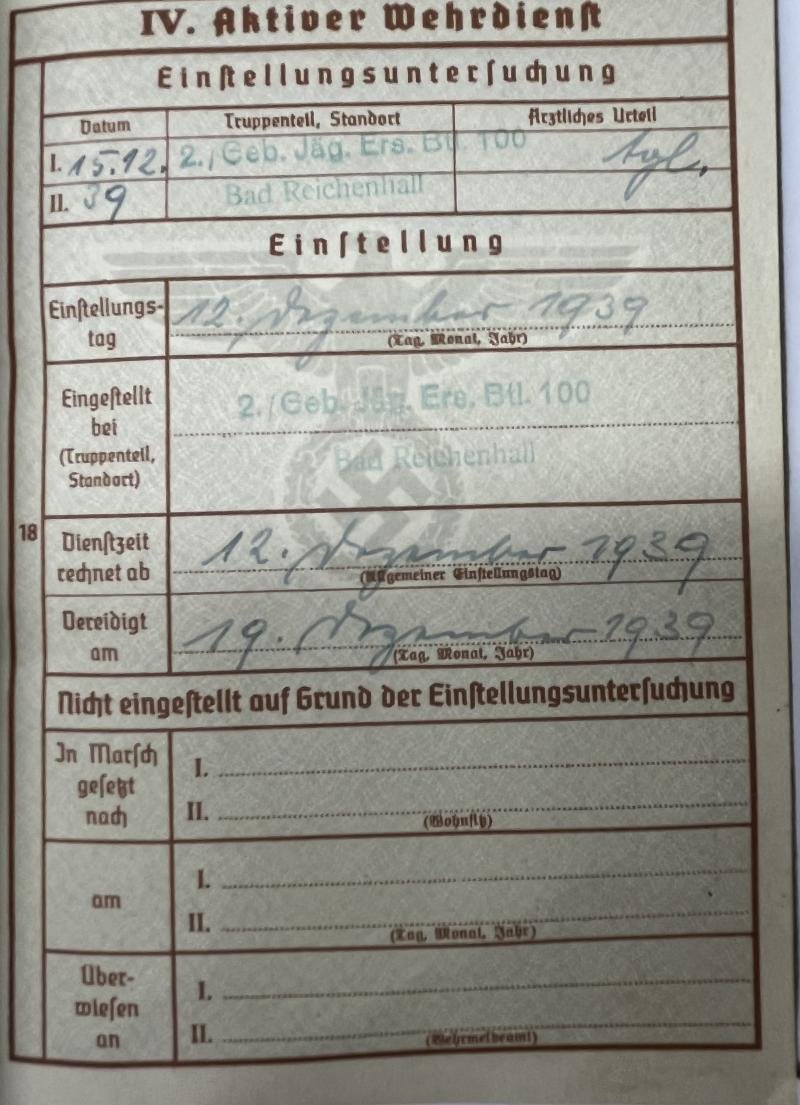 IV. Aktiver Wehrdienst
Einstellungsuntersuchung
Datum Truppenteil, Standort Ärztliches Urteil
I. 15.12. 2./Geb. Jäg. Ers. Btl. 100 tgl.
II. 39 Bad Reichenhall
Einstellung
Einstellungs-
tag
12. Dezember 1939
(Tag, Monat, Jahr)
Eingestellt
bei
(Truppenteil,
Standort)
2./Geb. Jäg. Ers. Btl. 100
Bad Reichenhall
18
Dienstzeit
rechnet ab
12. Dezember 1939
(Allgemeiner Einstellungstag)
Vereidigt
am
19. Dezember 1939
(Tag, Monat, Jahr)
Nicht eingestellt auf Grund der Einstellungsuntersuchung
In Marsch
gesetzt
nach
I.
II.
(Wohnsitz)
am
I.
II.
(Tag, Monat, Jahr)
Über-
wiesen
an
I.
II.
(Wehrmeldeamt)